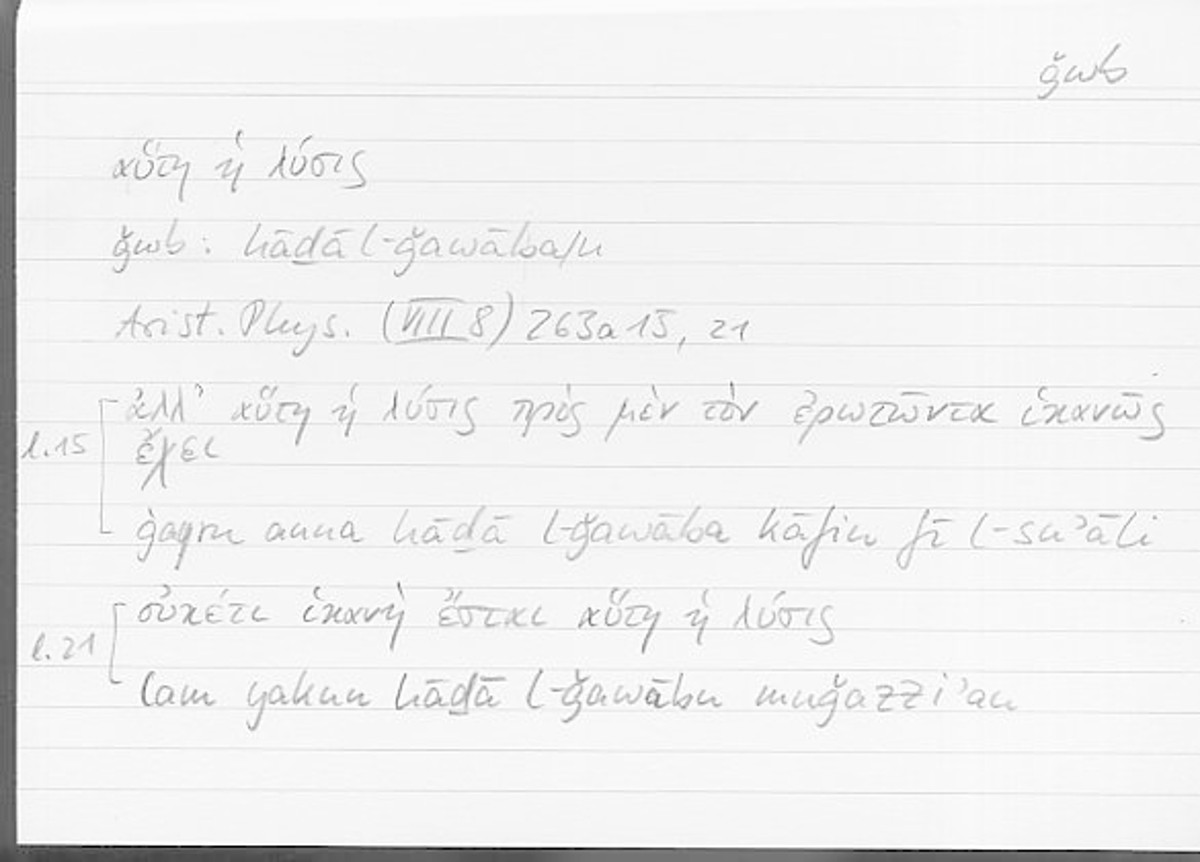 ǧwb
αὕτη ἡ λύσις
ǧwb : hāḏā l-ǧawāba/u
Arist. Phys. (VIII 8) 263a15, 21
l.15
ἀλλ’ αὕτη ἡ λύσις πρὸς μὲν τὸν ἐρωτῶντα ἱκανῶς
ἔχει
ġayru anna hāḏā l-ǧawāba kāfin fī l-suʾāli
l.21
οὐκέτι ἱκανὴ ἔσται αὕτη ἡ λύσις
lam yakun hāḏā l-ǧawābu muǧazziʾan